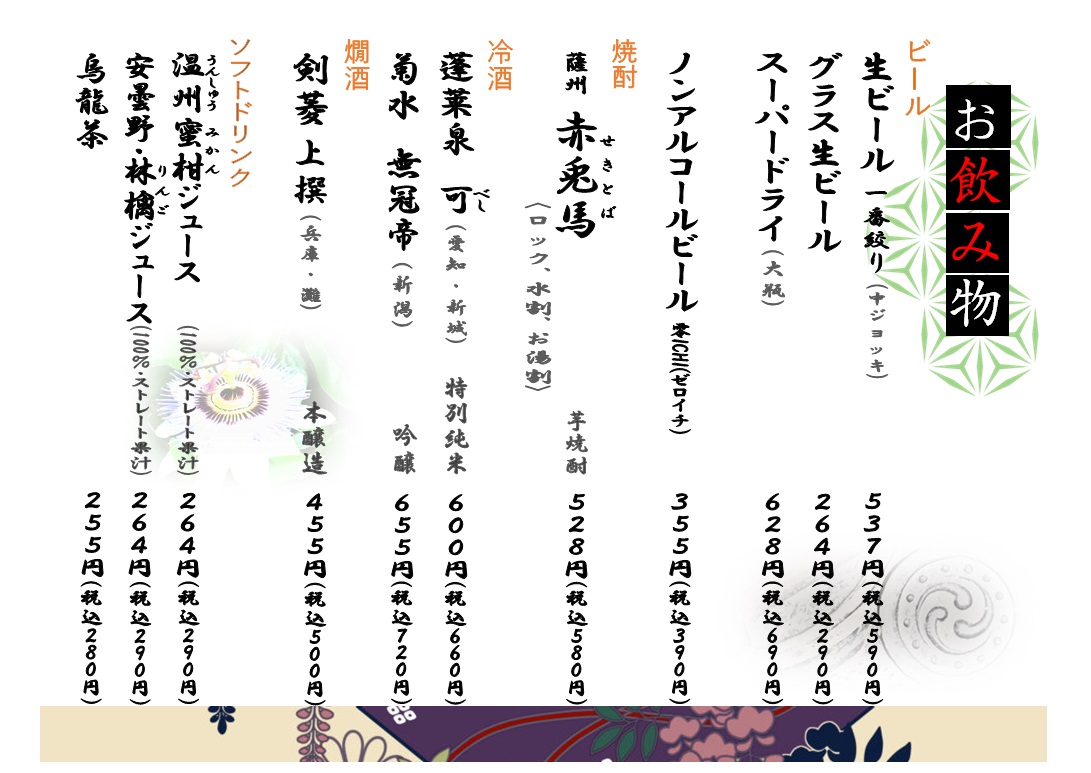 お飲み物
ビール
生ビール 一番絞り(中ジョッキ) 537円(税込590円)
グラス生ビール 264円(税込290円)
スーパードライ(大瓶) 628円(税込690円)
ノンアルコールビール 零ICHI(ゼロイチ) 355円(税込390円)
焼酎
薩州 赤兎馬 芋焼酎 528円(税込580円)
せきとば
〈ロック、水割、お湯割〉
冷酒
蓬莱泉 可(愛知・新城) 特別純米 600円(税込660円)
べし
菊水 無冠帝(新潟) 吟醸 655円(税込720円)
燗酒
剣菱 上撰(兵庫・灘) 本醸造 455円(税込500円)
ソフトドリンク
温州蜜柑ジュース(100%・ストレート果汁) 264円(税込290円)
うんしゅう みかん
安曇野・林檎ジュース(100%・ストレート果汁) 264円(税込290円)
りんご
烏龍茶 255円(税込280円)